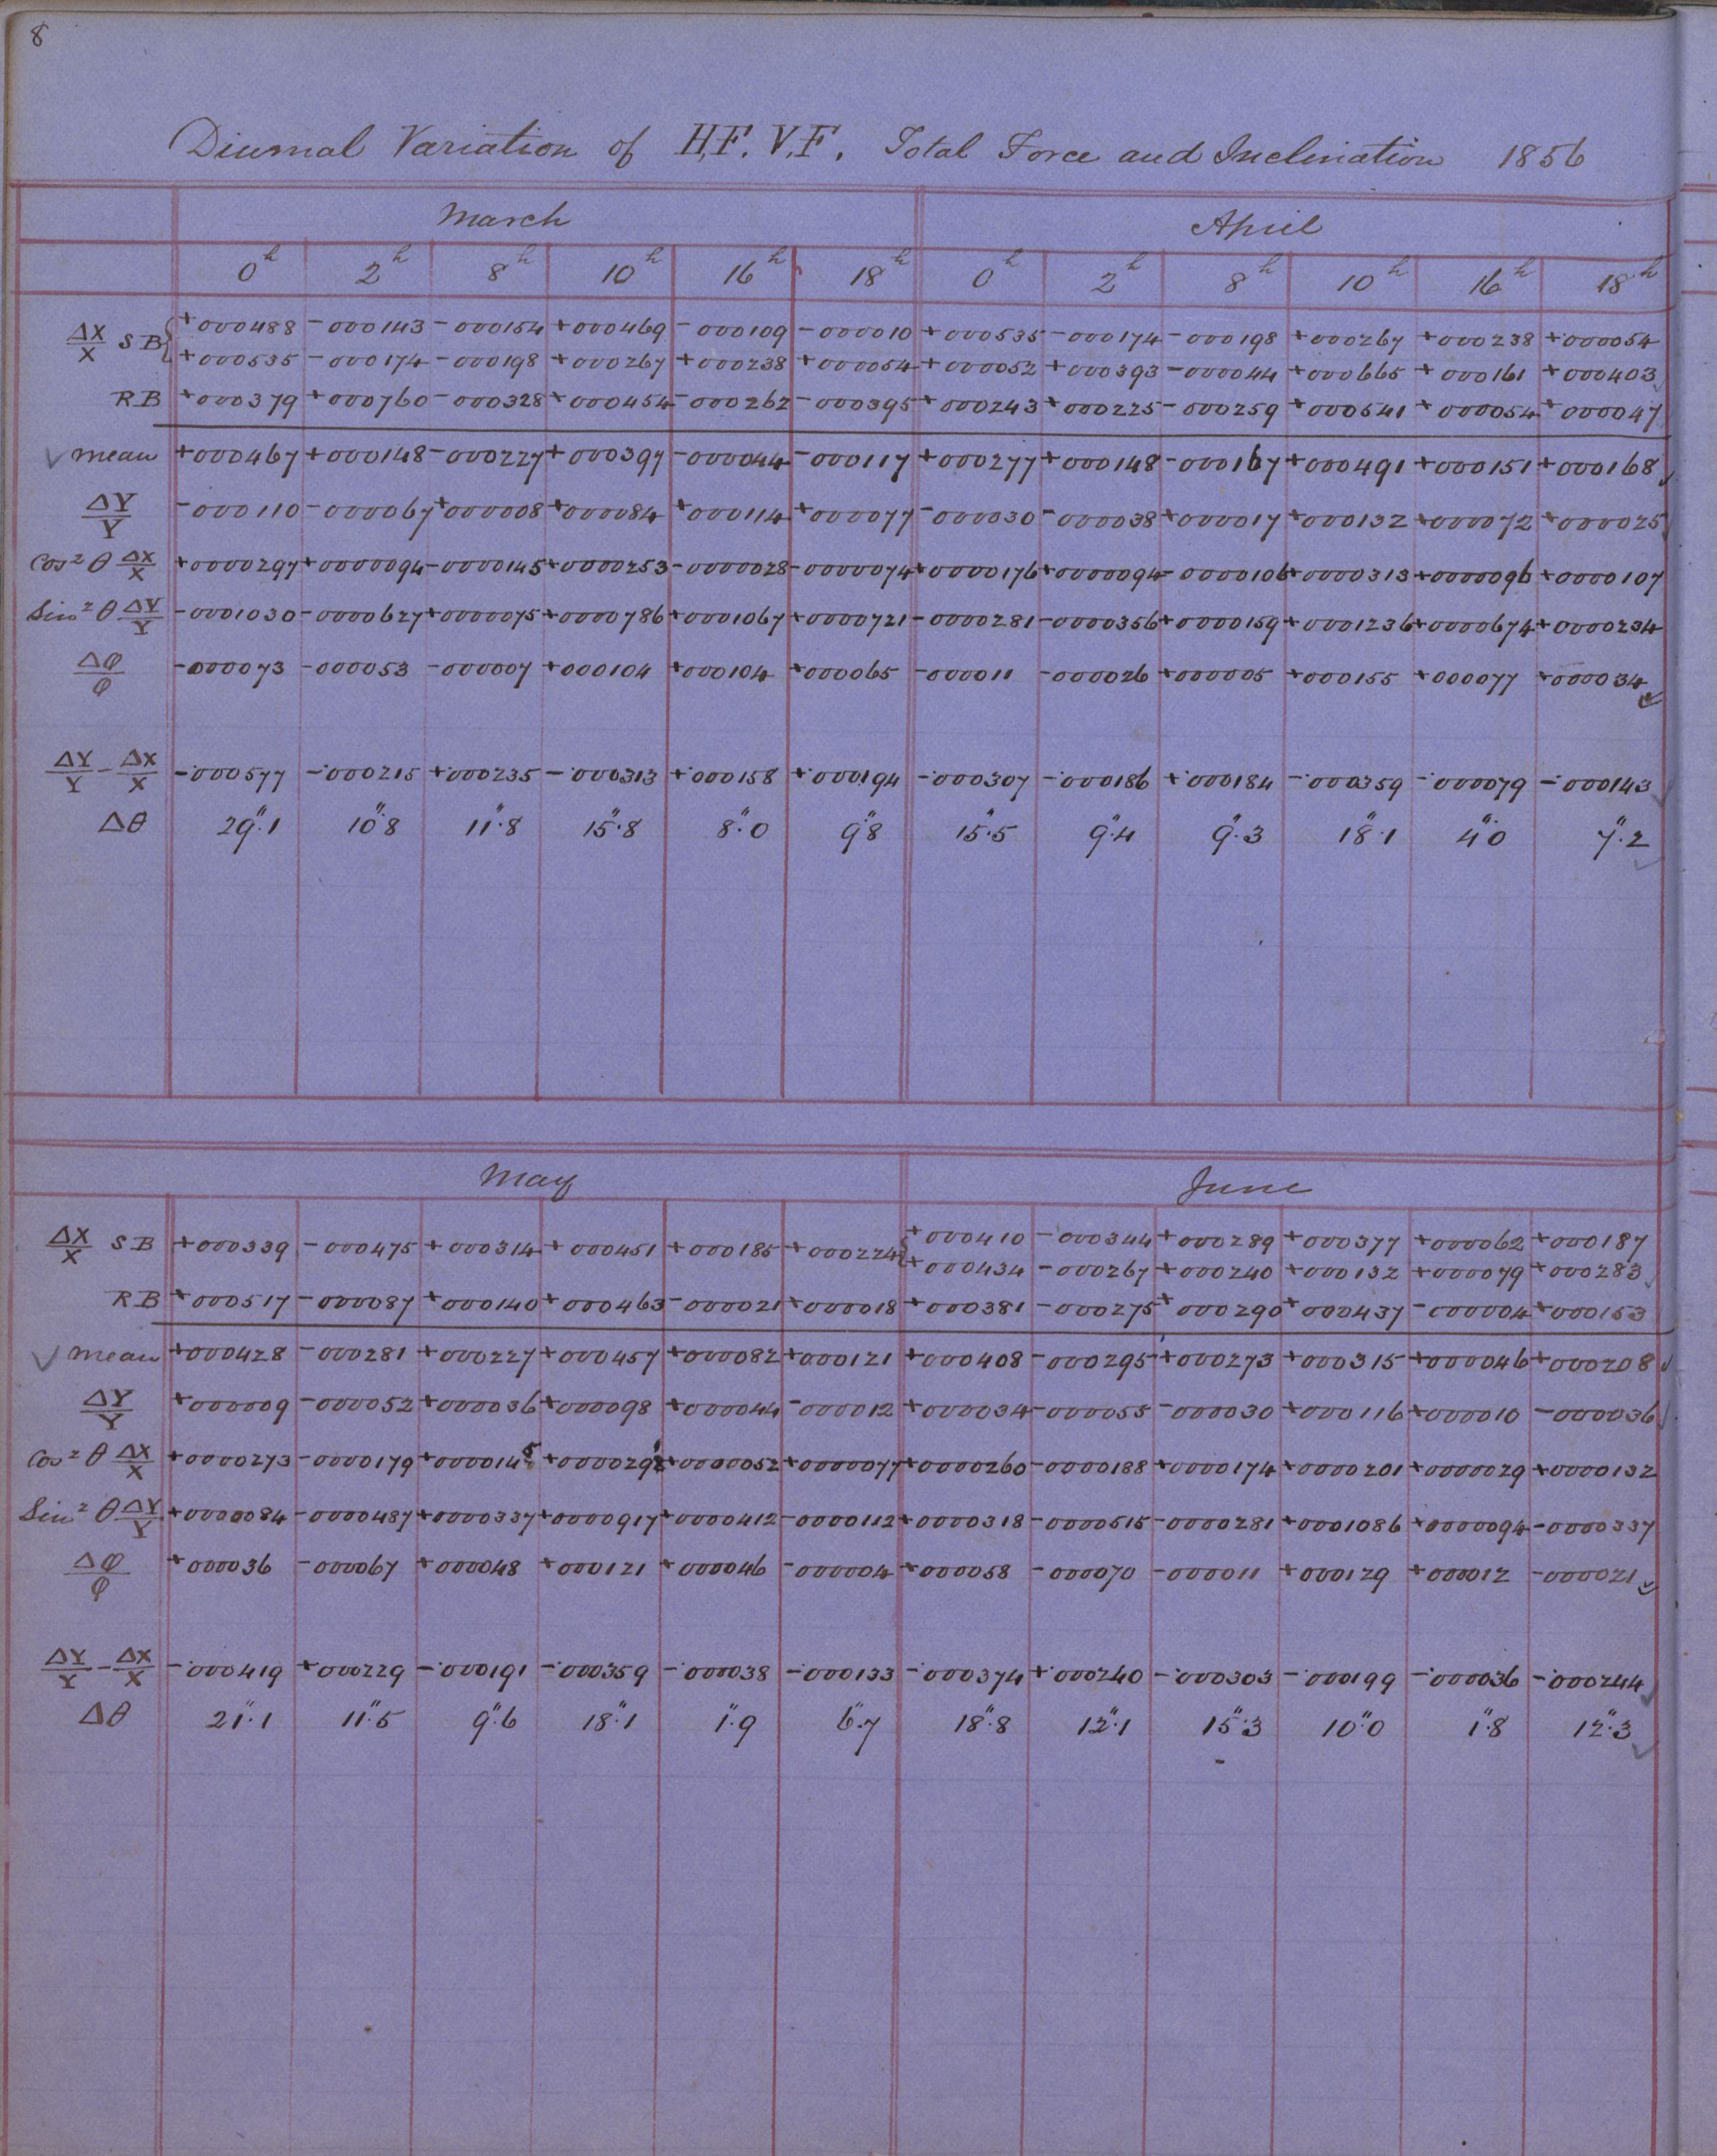 8
Diurnal Variation of H.F. V.F. Total Force and Inclination 1856
March April
0h 2h 8h 10h 16h 18h 0h 2h 8h 10h 16h 18h
ΔX/X SB { +000488 -000143 -000154 +000469 -000109 -000010 +000535 -000174 -000198 +000267 +000238 +000054
+000535 -000174 -000198 +000267 +000238 +000054 +000052 +000393 -000044 +000665 +000161 +000403
RB +000379 +000760 -000328 +000454 -000262 -000395 +000243 +000225 -000259 +000541 +000054 +000047
✓ mean +000467 +000148 -000227 +000397 -000044 -000117 +000277 +000148 -000167 +000491 +000151 +000168
ΔY/Y -000110 -000067 +000008 +000084 +000114 +000077 -000030 -000038 +000017 +000132 +000072 +000025
Cos² θ ΔX/X +0000297 +0000094 -0000145 +0000253 -0000028 -0000074 +0000176 +0000094 -0000106 +0000313 +0000096 +0000107
Sin² θ ΔY/Y -0001030 -0000627 +0000075 +0000786 +0001067 +0000721 -0000281 -0000356 +0000159 +0001236 +0000674 +0000234
Δφ/φ -000073 -000053 -000007 +000104 +000104 +000065 -000011 -000026 +000005 +000155 +000077 +000034
ΔY/Y - ΔX/X -·000577 -·000215 +·000235 -·000313 +·000158 +·000194 -·000307 -·000186 +·000184 -·000359 -·000079 -·000143
Δθ 29″.1 10″.8 11″.8 15″.8 8″.0 9″.8 15″.5 9″.4 9″.3 18″.1 4″.0 7″.2
May June
ΔX/X SB +000339 -000475 +000314 +000451 +000185 +000224 { +000410 -000344 +000289 +000377 +000062 +000187
+000434 -000267 +000240 +000132 +000079 +000283
RB +000517 -000087 +000140 +000463 -000021 +000018 +000381 -000275 +000290 +000437 -000004 +000153
✓ mean +000428 -000281 +000227 +000457 +000082 +000121 +000408 -000295 +000273 +000315 +000046 +000208
ΔY/Y +000009 -000052 +000036 +000098 +000044 -000012 +000034 -000055 -000030 +000116 +000010 -000036
Cos² θ ΔX/X +0000273 -0000179 +0000145 +0000291 +0000052 +0000077 +0000260 -0000188 +0000174 +0000201 +0000029 +0000132
Sin² θ ΔY/Y +0000084 -0000487 +0000337 +0000917 +0000412 -0000112 +0000318 -0000515 -0000281 +0001086 +0000094 -0000337
Δφ/φ +000036 -000067 +000048 +000121 +000046 -000004 +000058 -000070 -000011 +000129 +000012 -000021
ΔY/Y - ΔX/X -·000419 +·000229 -·000191 -·000359 -·000038 -·000133 -·000374 +·000240 -·000303 -·000199 -·000036 -·000244
Δθ 21″.1 11″.5 9″.6 18″.1 1″.9 6″.7 18″.8 12″.1 15″.3 10″.0 1″.8 12″.3